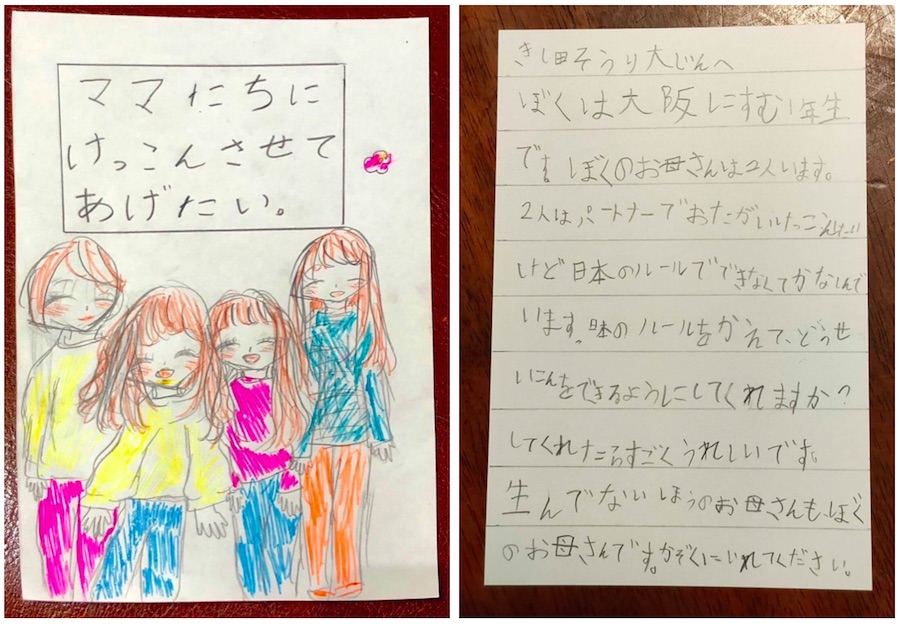 ママたちに
けっこんさせて
あげたい。
きし田そうり大じんへ
ぼくは大阪にすむ1年生
です。ぼくのお母さんは2人います。
2人はパートナーでおたがいけっこんしたい
けど日本のルールでできなくてかなしんで
います。日本のルールをかえて、どうせ
いこんをできるようにしてくれますか?
してくれたらすごくうれしいです。
生んでないほうのお母さんも、ぼく
のお母さんです。かぞくにいれてください。